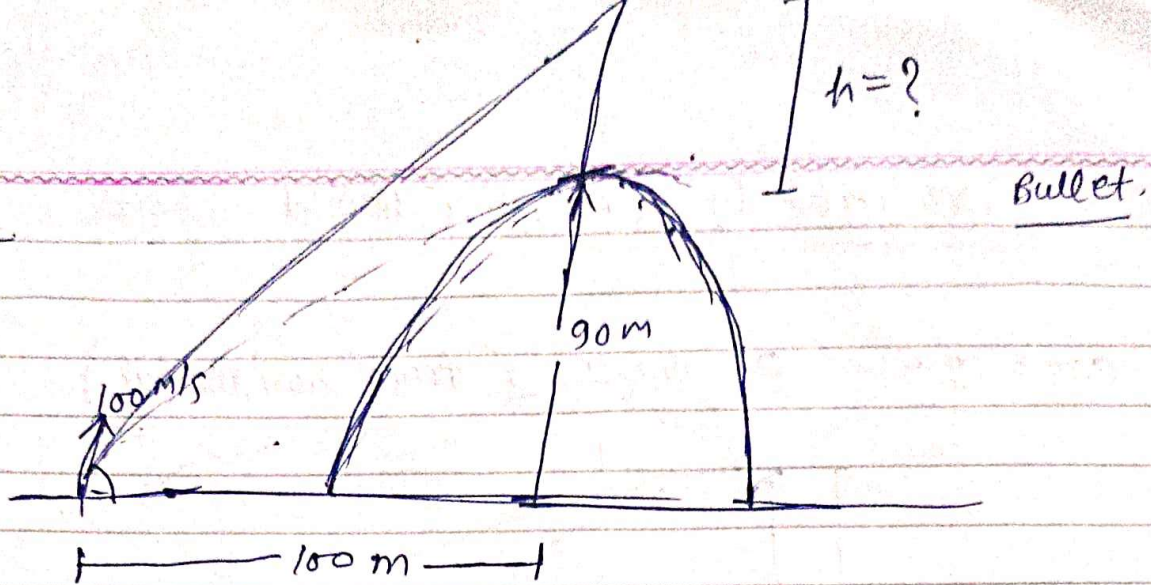 h=?
Bullet.
90m
100m/s
100 m